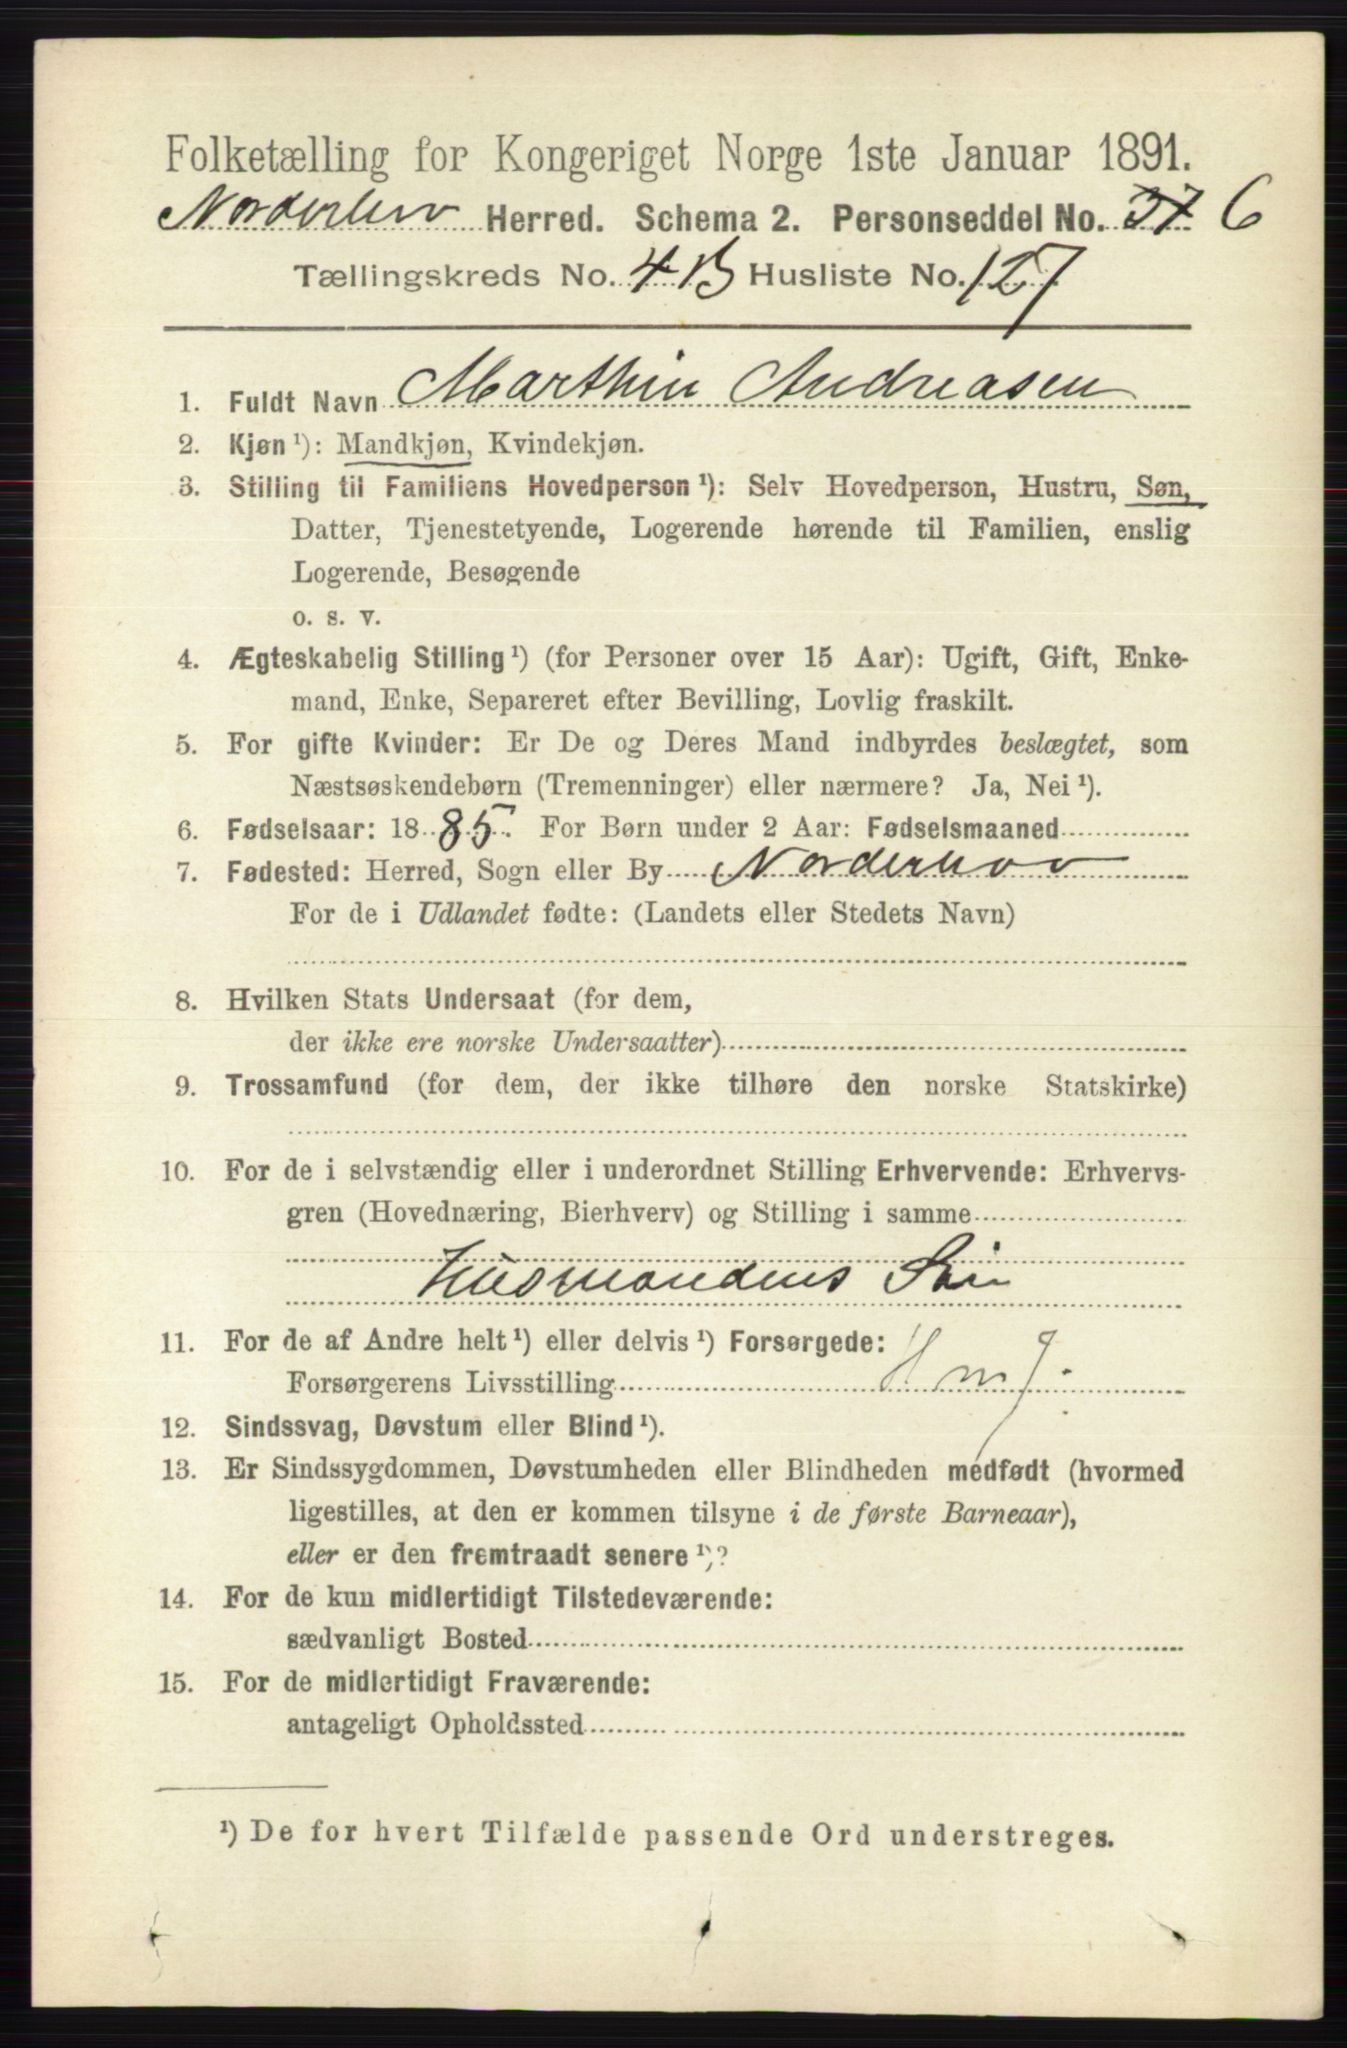 Folketælling for Kongeriget Norge 1ste Januar 1891.
Norderhov Herred. Schema 2. Personseddel No. 37 6
Tællingskreds No. 4B Husliste No. 127
1. Fuldt Navn Marthin Andreasen
2. Kjøn ¹): Mandkjøn, Kvindekjøn.
3. Stilling til Familiens Hovedperson ¹): Selv Hovedperson, Hustru, Søn,
Datter, Tjenestetyende, Logerende hørende til Familien, enslig
Logerende, Besøgende
o. s. v.
4. Ægteskabelig Stilling ¹) (for Personer over 15 Aar): Ugift, Gift, Enke-
mand, Enke, Separeret efter Bevilling, Lovlig fraskilt.
5. For gifte Kvinder: Er De og Deres Mand indbyrdes beslægtet, som
Næstsøskendebørn (Tremenninger) eller nærmere? Ja, Nei ¹).
6. Fødselsaar: 1885. For Børn under 2 Aar: Fødselsmaaned
7. Fødested: Herred, Sogn eller By Norderhov
For de i Udlandet fødte: (Landets eller Stedets Navn)
8. Hvilken Stats Undersaat (for dem,
der ikke ere norske Undersaatter)
9. Trossamfund (for dem, der ikke tilhøre den norske Statskirke)
10. For de i selvstændig eller i underordnet Stilling Erhvervende: Erhvervs-
gren (Hovednæring, Bierhverv) og Stilling i samme
Husmandens Søn
11. For de af Andre helt ¹) eller delvis ¹) Forsørgede:
Forsørgerens Livsstilling H m J.
12. Sindssvag, Døvstum eller Blind ¹).
13. Er Sindssygdommen, Døvstumheden eller Blindheden medfødt (hvormed
ligestilles, at den er kommen tilsyne i de første Barneaar),
eller er den fremtraadt senere ¹)?
14. For de kun midlertidigt Tilstedeværende:
sædvanligt Bosted
15. For de midlertidigt Fraværende:
antageligt Opholdssted
¹) De for hvert Tilfælde passende Ord understreges.